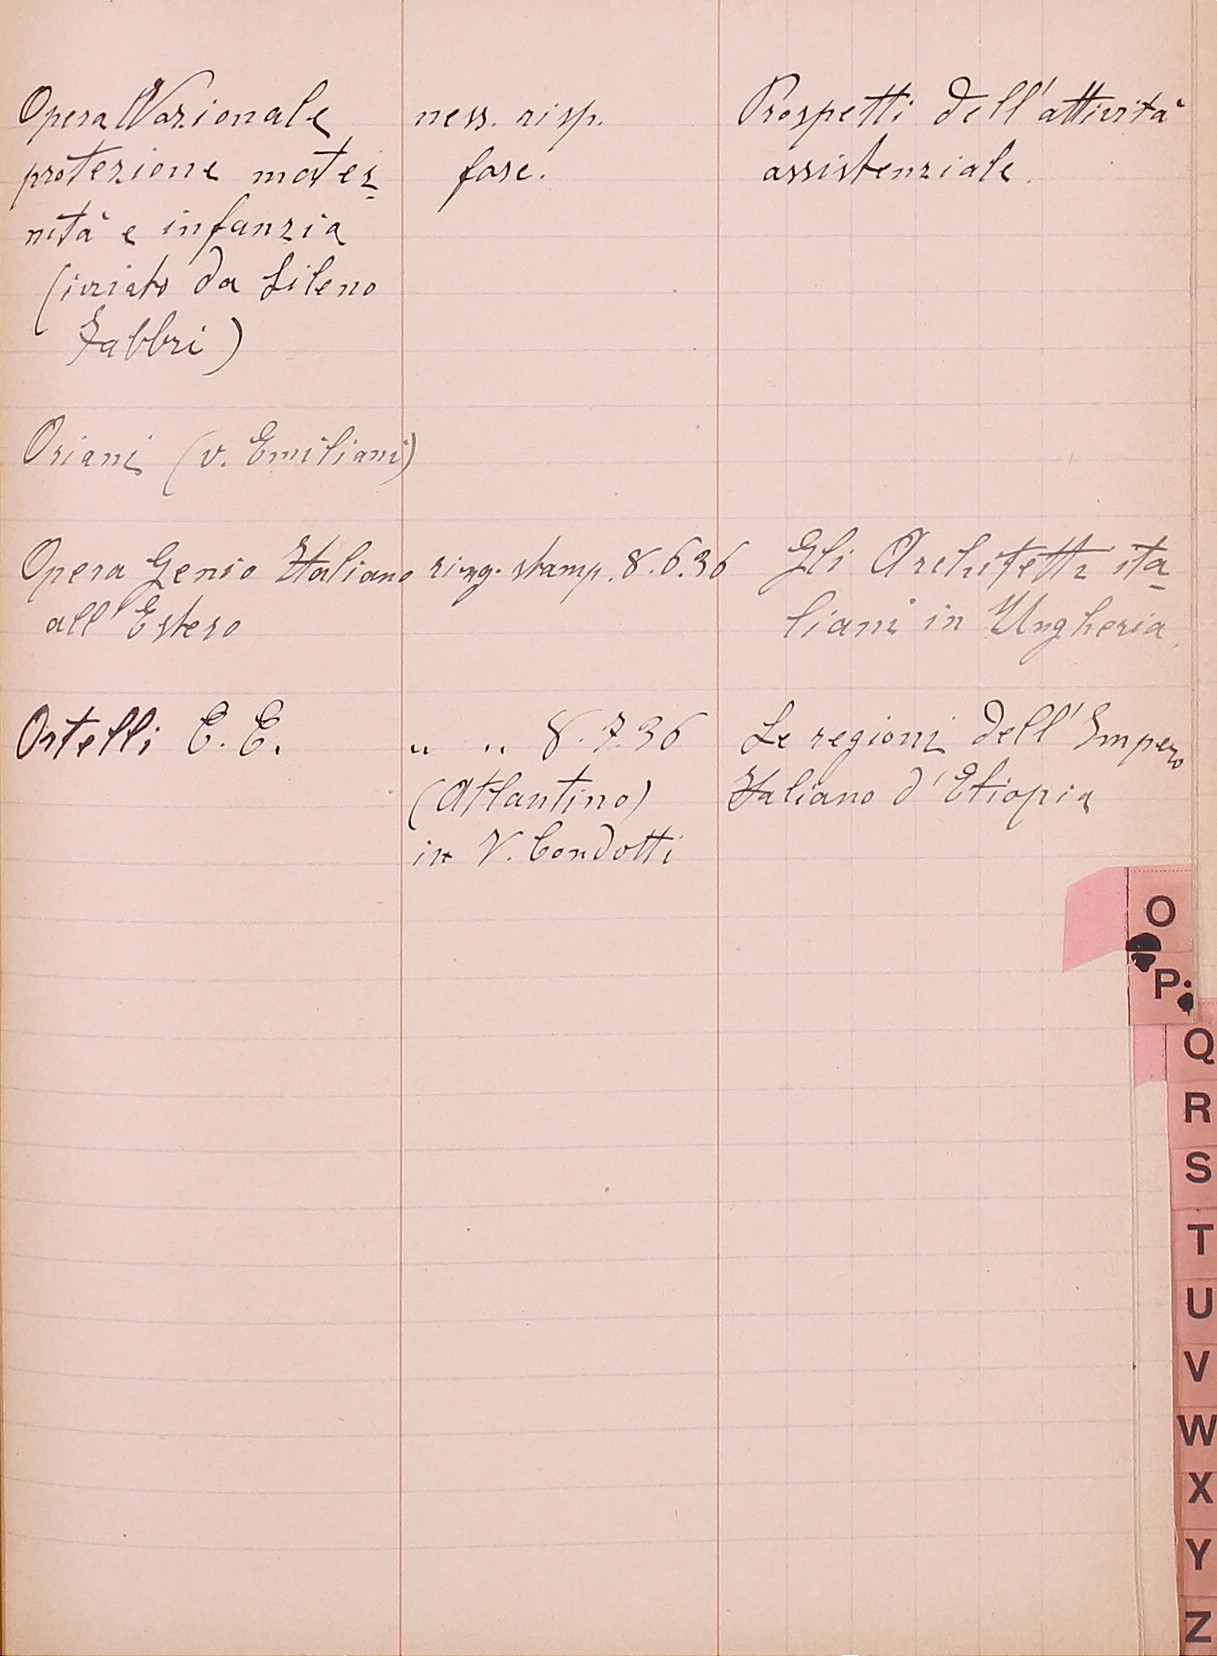 Opera Nazionale
protezione mater-
nità e infanzia
(inviato da Sileno
Fabbri)
ness. risp.
fasc.
Prospetti dell'attività
assistenziale.
Oriani (v. Emiliani)
Opera Genio Italiano
all'Estero
ring. stamp. 8.6.36
Gli Architetti ita-
liani in Ungheria.
Ortelli C. C.
" " 8.7.36
(Atlantino)
in V. Condotti
Le regioni dell'Impero
Italiano d'Etiopia
O
P
Q
R
S
T
U
V
W
X
Y
Z